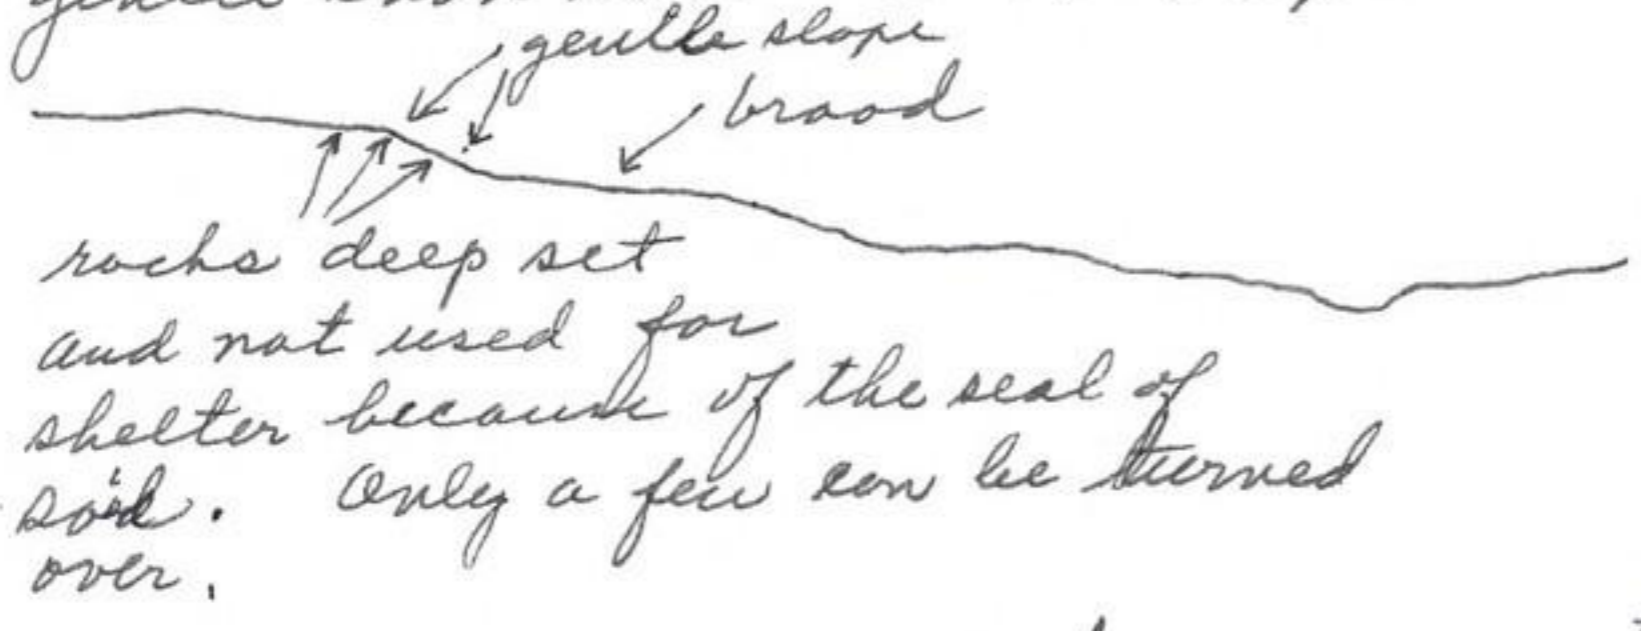 gentle slope
broad
rocks deep set
and not used for
shelter because of the seal of
soil. Only a few can be turned
over.